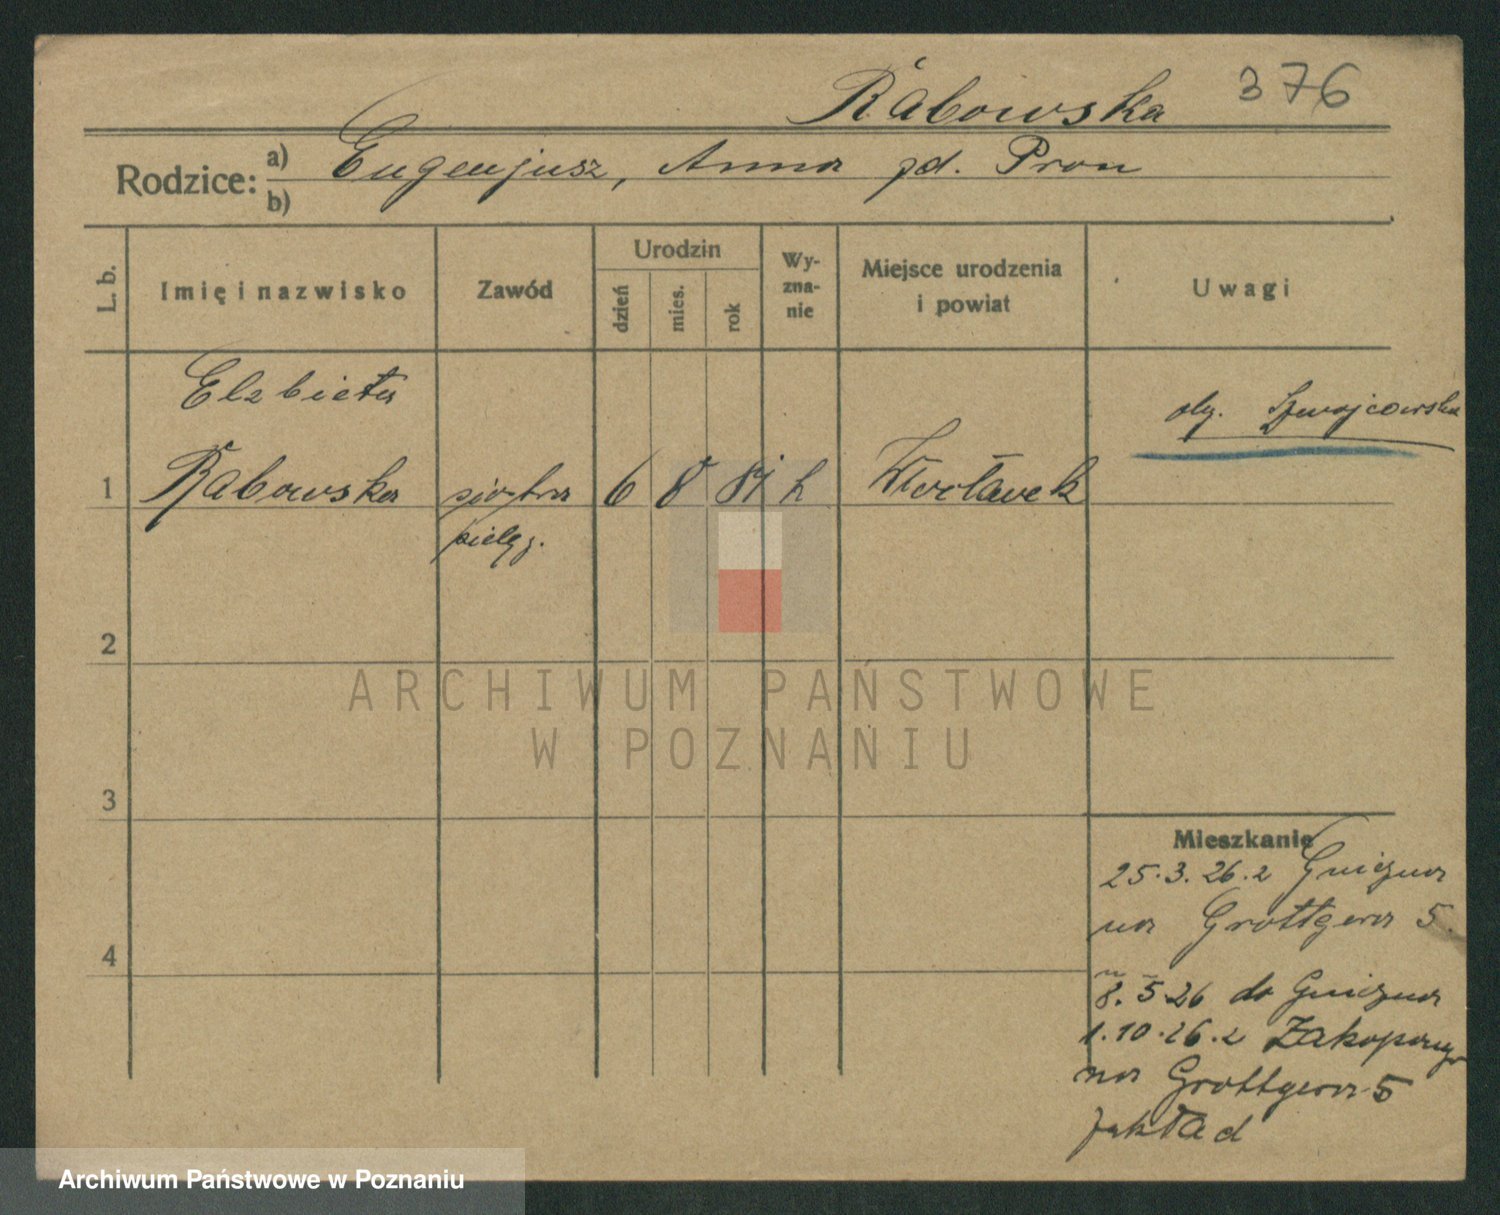 Rabowska 376
Rodzice: a) Eugenjusz, Anna zd. Pron
b)
L. b.
Imię i nazwisko
Zawód
Urodzin
dzień
mies.
rok
Wy-
zna-
nie
Miejsce urodzenia
i powiat
Uwagi
Elzbieta
1 Rabowska siostra 6 8 81 k Włocławek
pielęg.
ob.
2
3
4
Mieszkanie
25.3.26. z Gniezna
na Grottgera 5.
8.5.26 do Gniezna
1.10.26. z Zakopanego
na Grottgera 5
zakład
ARCHIWUM PAŃSTWOWE
W POZNANIU
Archiwum Państwowe w Poznaniu